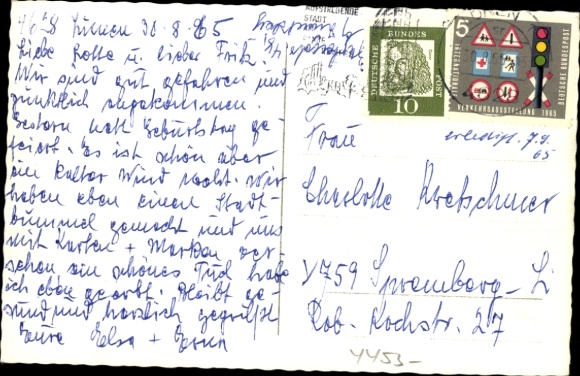 4628 Lünen 30.8.65
Liebe Lotte u. lieber Fritz!
Wir sind gut gefahren und
pünktlich angekommen.
Gestern hatt Geburtstag ge-
feiert. Es ist schön aber
ein kalter Wind weht. Wir
haben eben einen Stadt-
bummel gemacht und uns
mit Karten + Marken ver
sehen ein schönes
ich eben geerbt. Bleibt ge-
sund und herzlich gegrüßt
Eure Elsa + Erna
AUFSTREBENDE
STADT
DEUTSCHE BUNDES POST
10
5
VERKEHRSAUSSTELLUNG 1965
DEUTSCHE BUNDESPOST
erledigt. 7.9.
65
Frau
Charlotte Kretschmer
Y 759 Spremberg-L
Rob.-Kochstr. 27
4453-